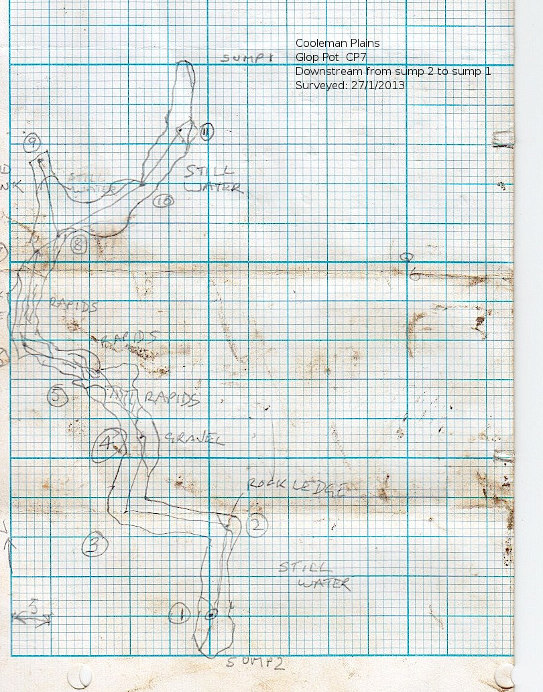 Cooleman Plains
Glop Pot CP7
Downstream from sump 2 to sump 1
Surveyed: 27/1/2013
SUMP 1
11
9
STILL
WATER
STILL
WATER
NK
10
8
RAPIDS
RAPIDS
5
RAPIDS
4
GRAVEL
ROCK LEDGE
2
3
STILL
WATER
5
1
SUMP 2